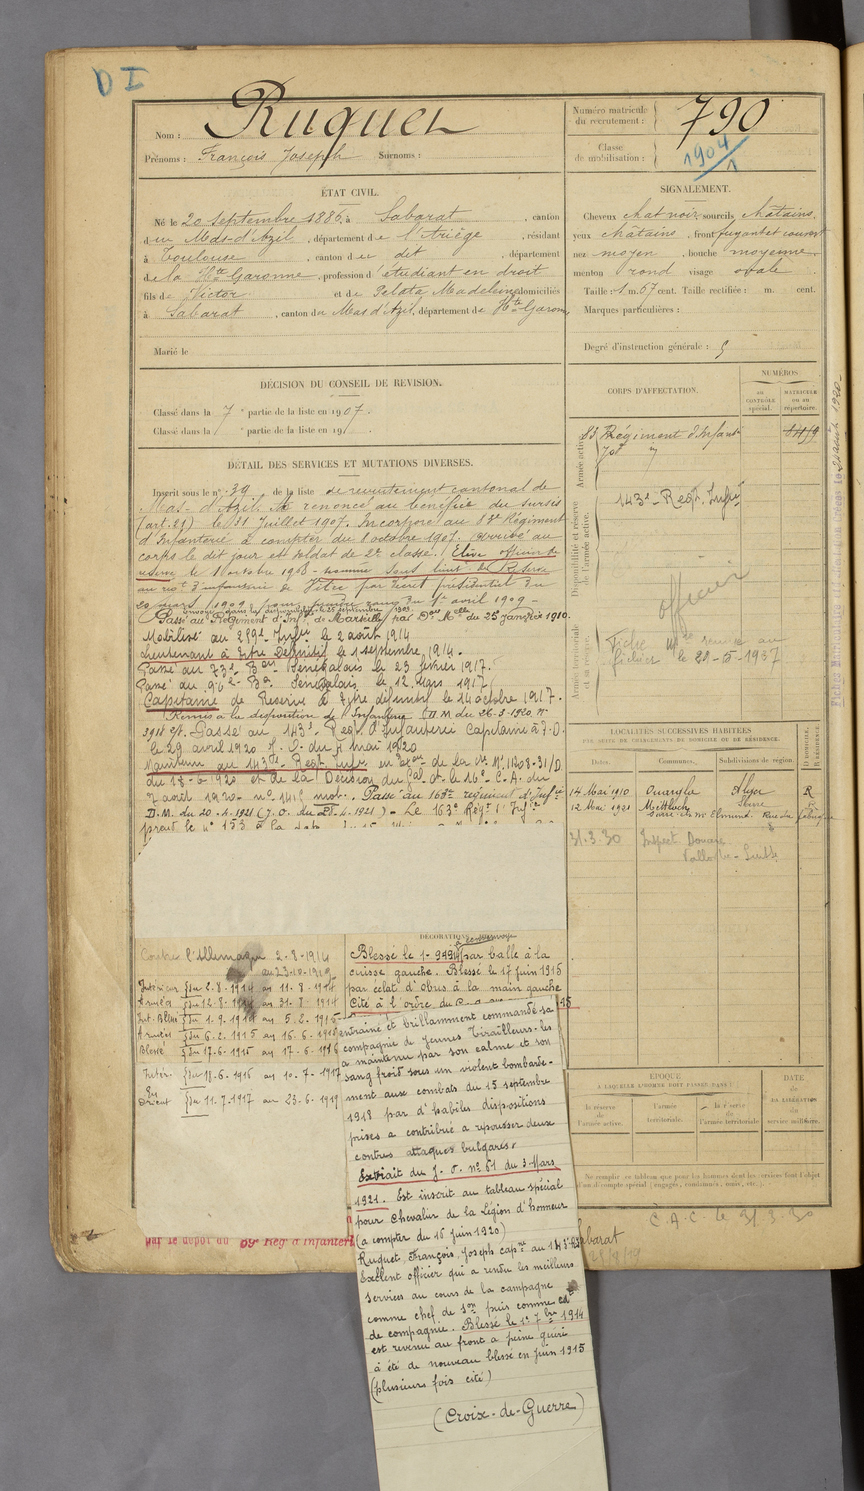 D I
Nom : Ruquet
Prénoms : François Joseph Surnoms :
Numéro matricule
du recrutement : 790
Classe
de mobilisation : 1904/1
ÉTAT CIVIL.
Né le 20 septembre 1886, à Sabarat, canton
du Mas-d'Azil, département de l'Ariège, résidant
à Toulouse, canton du dit, département
de la Hte Garonne, profession d'étudiant en droit
fils de Victor et de Pelata Madeleine domiciliés
à Sabarat, canton du Mas d'Azil, département de Hte Garonne
Marié le
SIGNALEMENT.
Cheveux chat noir sourcils châtains,
yeux châtains, front fuyant et couvert
nez moyen, bouche moyenne
menton rond visage ovale
Taille : 1 m. 67 cent. Taille rectifiée : m. cent.
Marques particulières :
Degré d'instruction générale : 5
DÉCISION DU CONSEIL DE REVISION.
Classé dans la 7e partie de la liste en 1907.
Classé dans la e partie de la liste en 19
DÉTAIL DES SERVICES ET MUTATIONS DIVERSES.
Inscrit sous le n° 39 de la liste de recrutement cantonal de
Mas-d'Azil. A renoncé au bénéfice du sursis
(art. 21) le 31 Juillet 1907. Incorporé au 83e Régiment
d'Infanterie à compter du 8 octobre 1907. Arrivé au
corps le dit jour et soldat de 2e classe. Elève officier de
réserve le 1 octobre 1908 - nommé sous lieut. de Réserve
au d'infanterie à titre par décret présidentiel du
20 mars 1909 du 1er avril 1909 -
envoyé dans la disponibilité le 25 septembre 1909.
Passé au Régiment d'Inf. de Marseille par Don Melle du 26 janvier 1910.
Mobilisé au 259e Infrie le 2 août 1914
Lieutenant à Titre Définitif le 1 septembre 1914.
Passé au 73e Bon Sénégalais le 23 février 1917.
Passé au 96e Bon Sénégalais le 12 Mars 1917
Capitaine de Réserve à titre définitif le 14 octobre 1917.
Remis à la disposition de l'Infanterie (D.M du 26-3-1920 n°
3918 2/1. Passé au 143e Régt d'Infanterie Capitaine à T.D.
le 29 avril 1920 J. O. du 7 mai 1920
Maintenu au 143e Regt Infie en exon de la N. M. 11208-31/D
du 18-6-1920 et de la Décision du Gal Ct le 16e C.A. du
7 août 1920 - n° 1415 mot. Passé au 163e régiment d'Infie
D.M. du 20-4-1921 (J.O. du 25-4-1921) - Le 163e Régt d'Infie
prend le n° 153 à la date
CORPS D'AFFECTATION.
NUMÉROS
AU CONTRÔLE spécial.
MATRICULE ou au répertoire.
Armée active.
83 Régiment d'Infant
Disponibilité et réserve de l'armée active.
143e Regt. Infie
officier
Armée territoriale et sa réserve.
Fiche remise au
fichier le 29-5-1937
LOCALITÉS SUCCESSIVES HABITÉES
PAR SUITE DE CHANGEMENTS DE DOMICILE OU DE RÉSIDENCE.
Dates. Communes. Subdivisions de région. D. DOMICILE. R. RÉSIDENCE.
14 Mai 1910 Ouargla Alger R
12 Mai 1921 Mettlach Sarre
31.3.30 Inspect Douane
DÉCORATIONS
Contre l'Allemagne 2-8-1914
au 23-10-1919
Intérieur du 2-8-1914 au 11-8-1914
Armées du 12-8-1914 au 31-8-1914
Int. Blessé du 1-9-1914 au 5-2-1915
Armées du 6-2-1915 au 16-6-1915
Blessé du 17-6-1915 au 17-6-1916
Intér. du 18-6-1916 au 10-7-1917
En Orient du 11-7-1917 au 23-6-1919
Blessé le 1-9-1914 par balle à la
cuisse gauche. Blessé le 17 juin 1915
par éclat d'obus à la main gauche
Cité à l'ordre du
entrainé et brillamment commandé sa
compagnie de jeunes Tirailleurs. les
a maintenu par son calme et son
sang froid sous un violent bombarde-
ment aux combats du 15 septembre
1918 par d'habiles dispositions
prises a contribué à repousser deux
contres attaques bulgares.
Extrait du J. O. n° 61 du 3 Mars
1921. Est inscrit au tableau spécial
pour Chevalier de la Légion d'honneur
(à compter du 16 juin 1920)
Ruquet, François, Joseph capne au 143e RI
Excellent officier qui a rendu les meilleurs
services au cours de la campagne
comme chef de son puis comme cdt
de compagnie. Blessé le 1er 7bre 1914
est revenu au front à peine guéri
à été de nouveau blessé en juin 1915
(plusieurs fois cité)
(Croix-de-Guerre)
ÉPOQUE
À LAQUELLE L'HOMME DOIT PASSER DANS :
la réserve de l'armée active.
l'armée territoriale.
la réserve de l'armée territoriale.
DATE de LA LIBÉRATION du service militaire.
Ne remplir ce tableau que pour les hommes dont les services font l'objet
d'un décompte spécial (engagés, condamnés, omis, etc.).
C.A.C. le 31.3.30
par le dépôt du 59e Rég. d'Infanterie
Sabarat